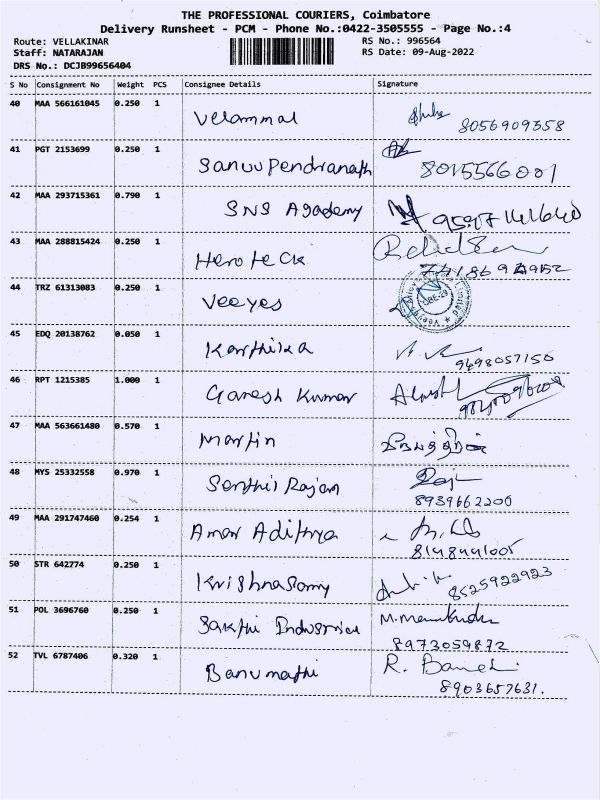 THE PROFESSIONAL COURIERS, Coimbatore
Delivery Runsheet - PCM - Phone No.:0422-3505555 - Page No.:4
Route: VELLAKINAR
RS No.: 996564
Staff: NATARAJAN
RS Date: 09-Aug-2022
DRS No.: DCJB99656404
S No Consignment No Weight PCS Consignee Details Signature
40 MAA 566161045 0.250 1 Velammal
8056909358
41 PGT 2153699 0.250 1 Sanuupendranath
8015566001
42 MAA 293715361 0.790 1 SNS Agademy
43 MAA 288815424 0.250 1 Heroteck
44 TRZ 61313083 0.250 1 Veeyes
45 EDQ 20138762 0.050 1 Karthika
9498057150
46 RPT 1215385 1.000 1 Ganesh Kumar
47 MAA 563661480 0.570 1 Martin
48 MYS 25332558 0.970 1 Senthil Rajam
8939662200
49 MAA 291747460 0.254 1 Amar Adithya
8148441005
50 STR 642774 0.250 1 Krishnasamy
8525922923
51 POL 3696760 0.250 1 Sakthi Industries
8973059872
52 TVL 6787406 0.320 1 Banumathi
R. Banu
8903657631.